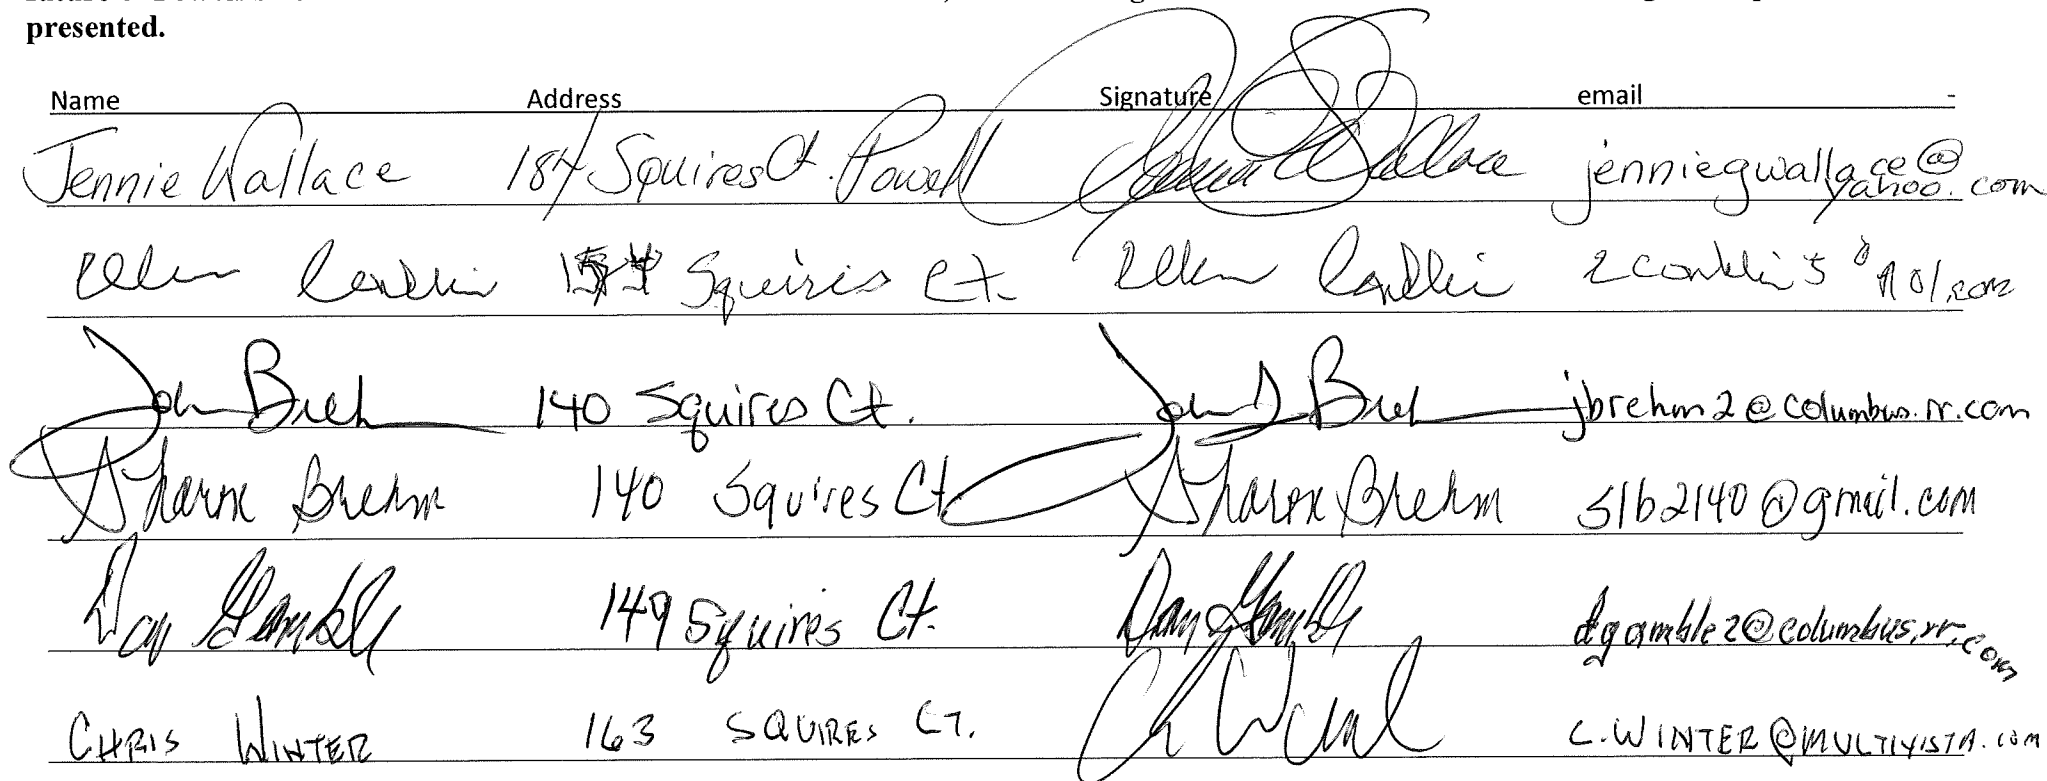 presented.
Name Address Signature email -
Jennie Wallace 184 Squires Ct. Powell Wallace jenniegwallace@yahoo.com
Ellen Conklin Squires Ct. Ellen Conklin
John Brehm 140 Squires Ct. John Brehm jbrehm2@columbus.rr.com
Sharon Brehm 140 Squires Ct Sharon Brehm slb2140@gmail.com
Dan Gamble 149 Squires Ct. Dan Gamble dgamble2@columbus.rr.com
CHRIS WINTER 163 SQUIRES CT. C.WINTER@MULTIVISTA.COM